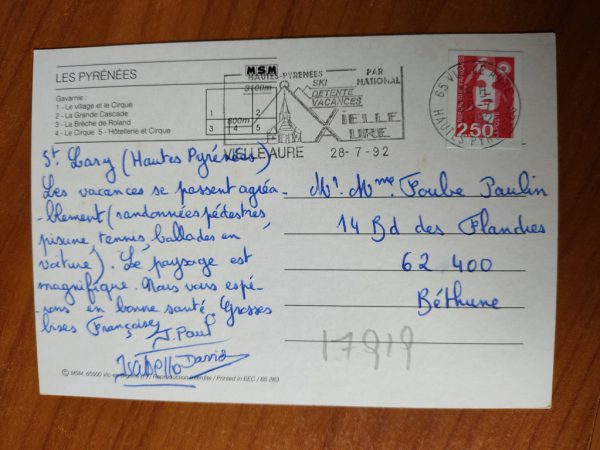 LES PYRÉNÉES
Gavarnie :
1 - Le village et le Cirque
2 - La Grande Cascade
3 - La Brèche de Roland
4 - Le Cirque 5 - Hôtellerie et Cirque
MSM
HAUTES-PYRENEES
3100m
800m
1
2
3 4 5
SKI
DETENTE
VACANCES
PAR
NATIONAL
VIELLE
AURE
VIELLE AURE 28-7-92
65 VIELLE
HAUTES PYR
2,50
St Lary (Hautes Pyrénées)
Les vacances se passent agréa-
-blement (randonnées pédestres,
piscine, tennis, ballades en
voiture). Le paysage est
magnifique. Nous vous espé-
-rons en bonne santé. Grosses
bises Françoise
J. Paul
Isabelle David
Mr. Mme Foube Paulin
14 Bd des Flandres
62 400
Béthune
17919
© MSM 65500 Vic-en-Bigorre / Reproduction interdite / Printed in EEC / 65 283